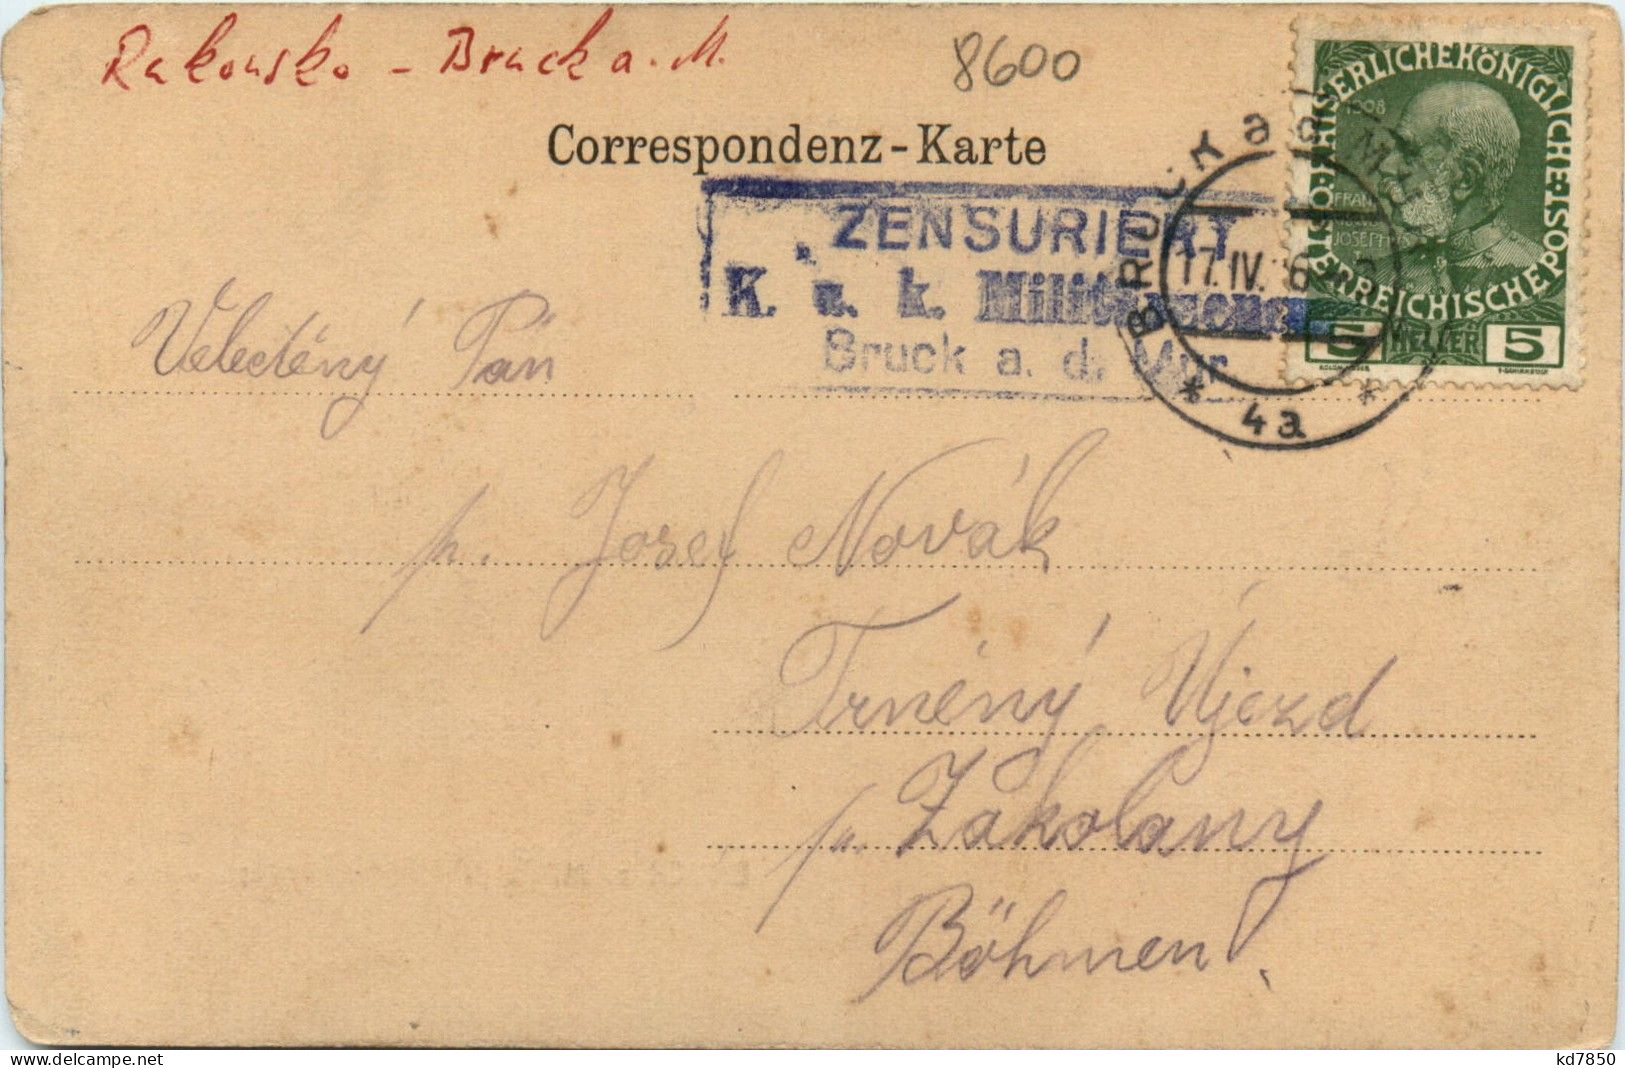 Rakousko - Bruck a. M.
8600
Correspondenz-Karte
KAISERLICHE KÖNIGLICHE ÖSTERREICHISCHE POST
1908
FRANZ JOSEPH
5 HELLER 5
ZENSURIERT
K. u. k. Militärzensur
Bruck a. d. Mur
BRUCK a.d. MUR
17.IV.
4a
Veleděný Pán
p. Josef Novák
Trněný Ujezd
p. Zákolany
Böhmen.
delcampe.net
kd7850